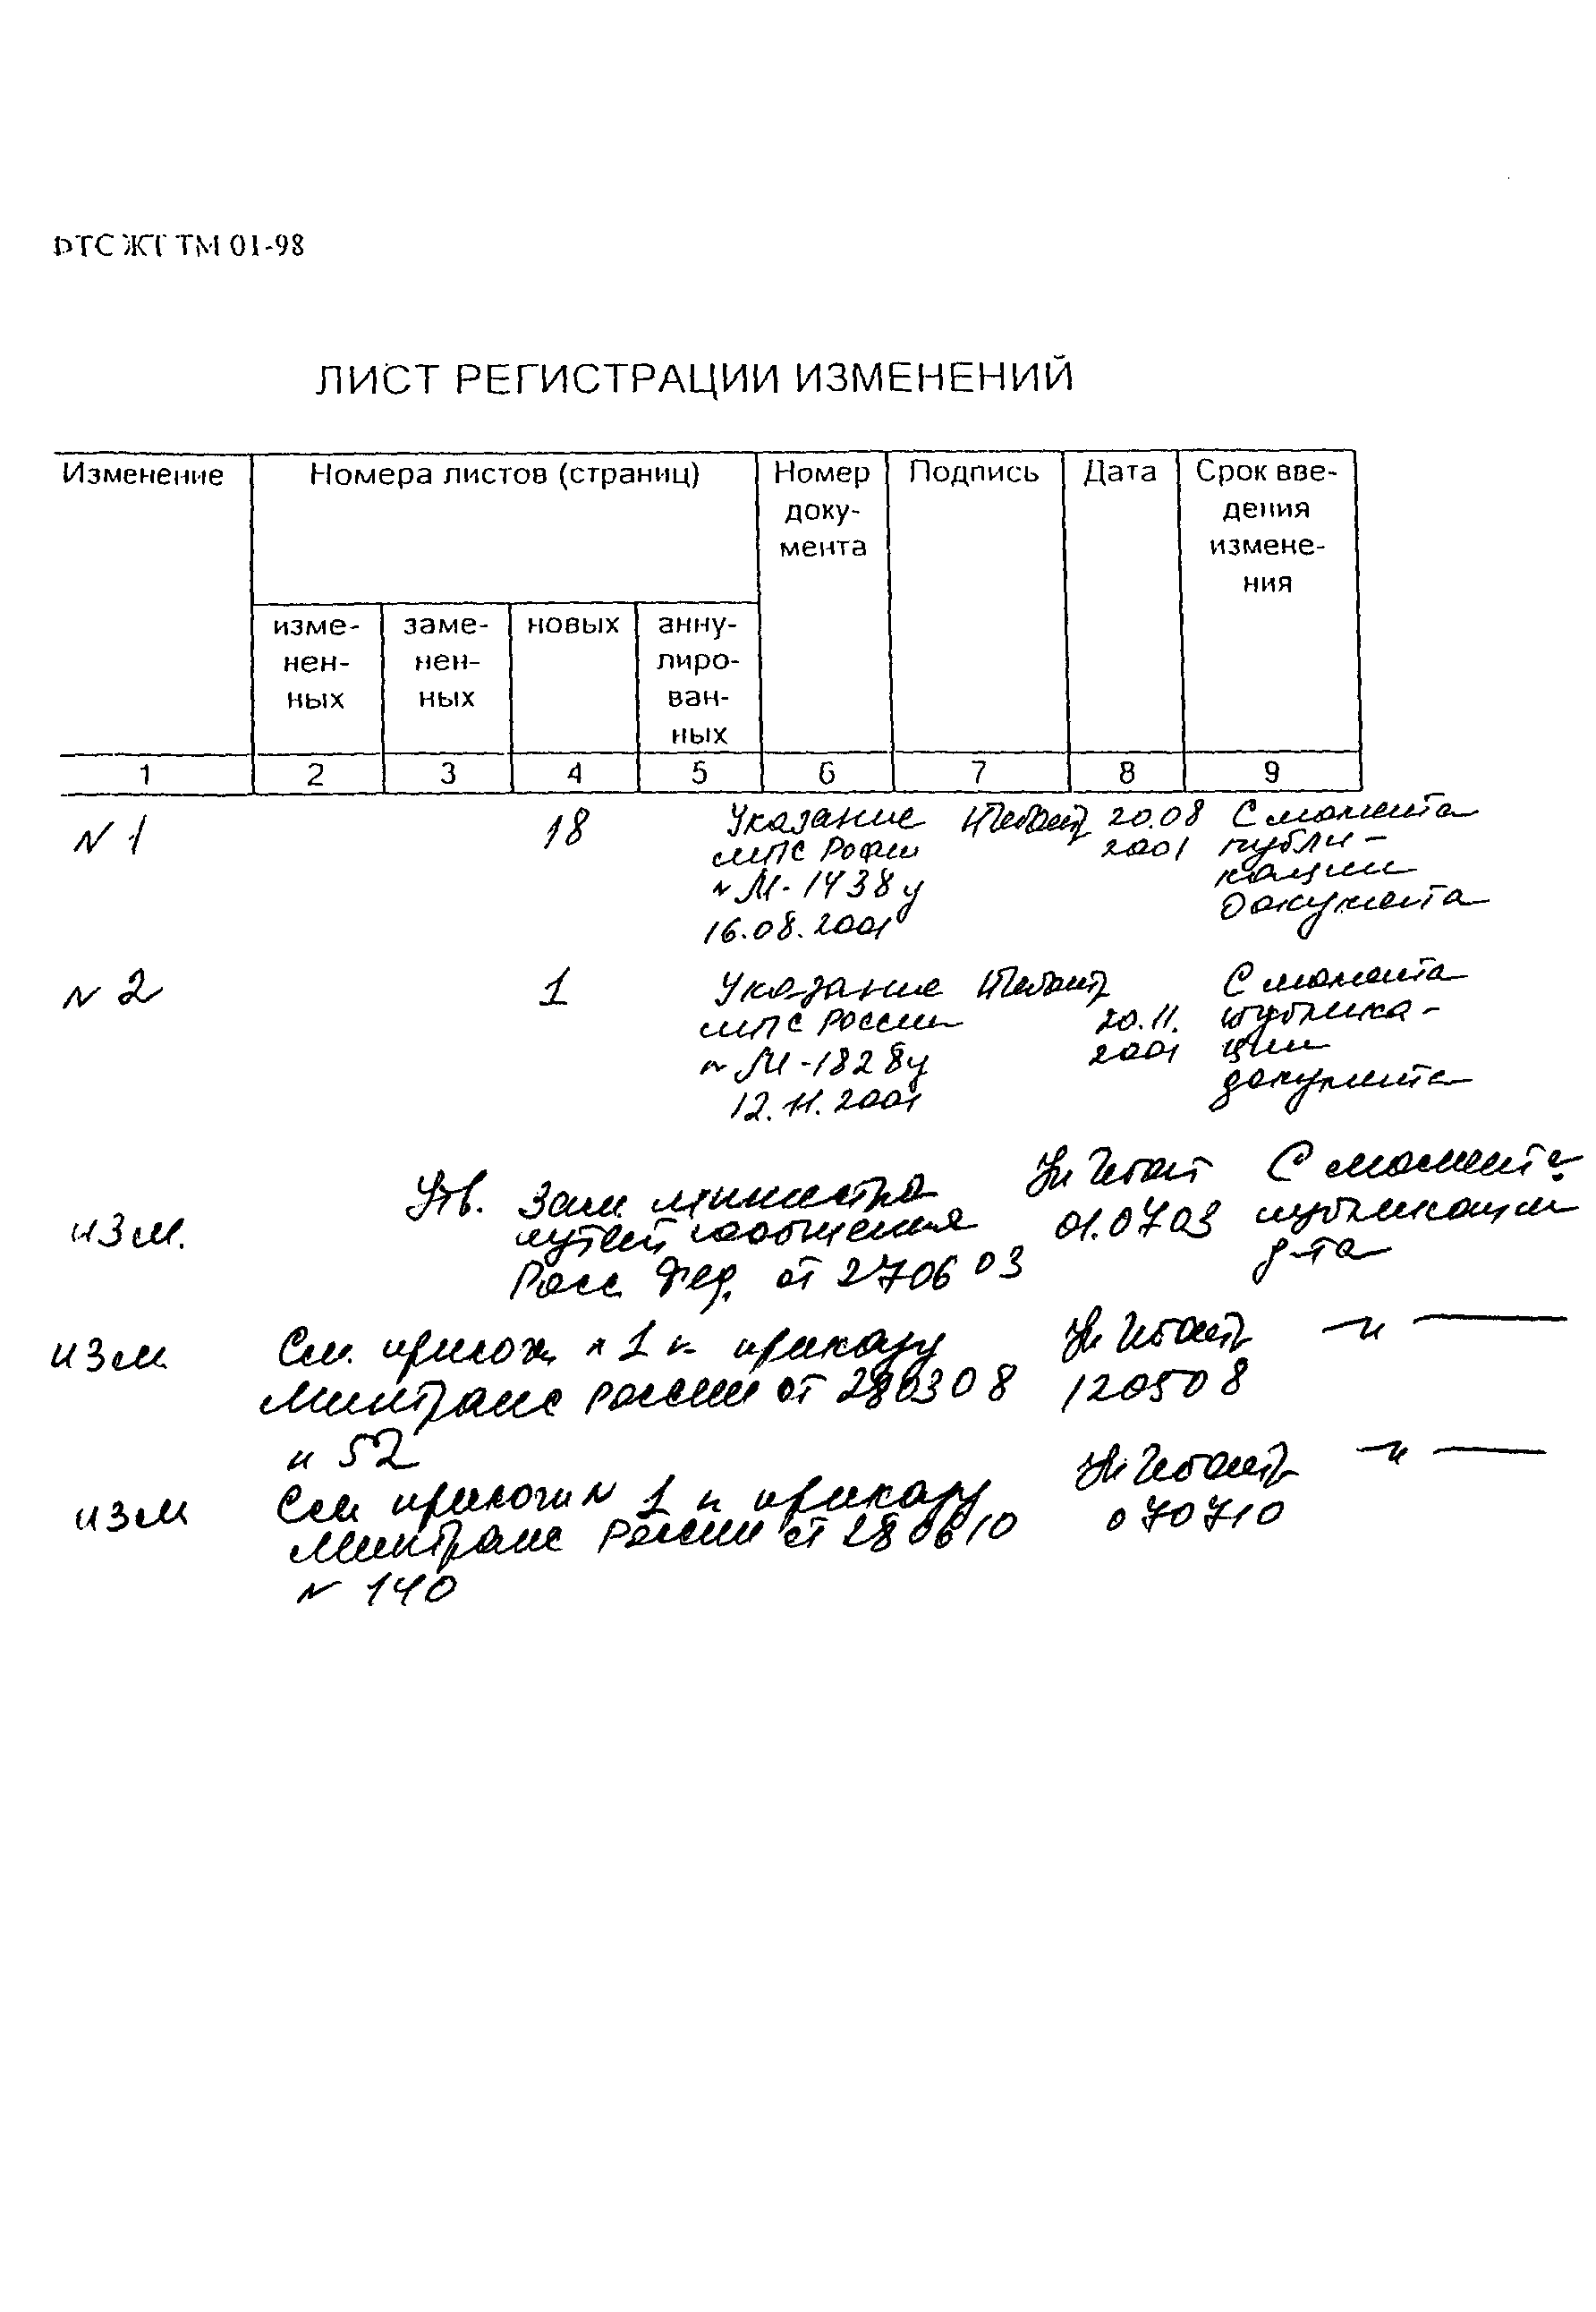 ФТС ЖТ ТМ 01-98
ЛИСТ РЕГИСТРАЦИИ ИЗМЕНЕНИЙ
Изменение
Номера листов (страниц)
Номер
доку-
мента
Подпись
Дата
Срок вве-
дения
измене-
ния
изме-
нен-
ных
заме-
нен-
ных
новых
анну-
лиро-
ван-
ных
1 2 3 4 5 6 7 8 9
N 1
18
Указание
МПС России
N М-1438у
16.08.2001
20.08
2001
С момента
публи-
кации
документа
N 2
1
Указание
МПС России
N М-1828у
12.11.2001
20.11.
2001
С момента
публика-
ции
документа
изм.
Утв. Зам. министра
путей сообщения
Росс. Фед. от 270603
01.0703
С момента
публикации
д-та
изм
См. прилож N 1 к приказу
Минтранс России от 280308
N 52
120508
— и —
изм
См прилож N 1 к приказу
Минтранс России от 280610
N 140
070710
— и —